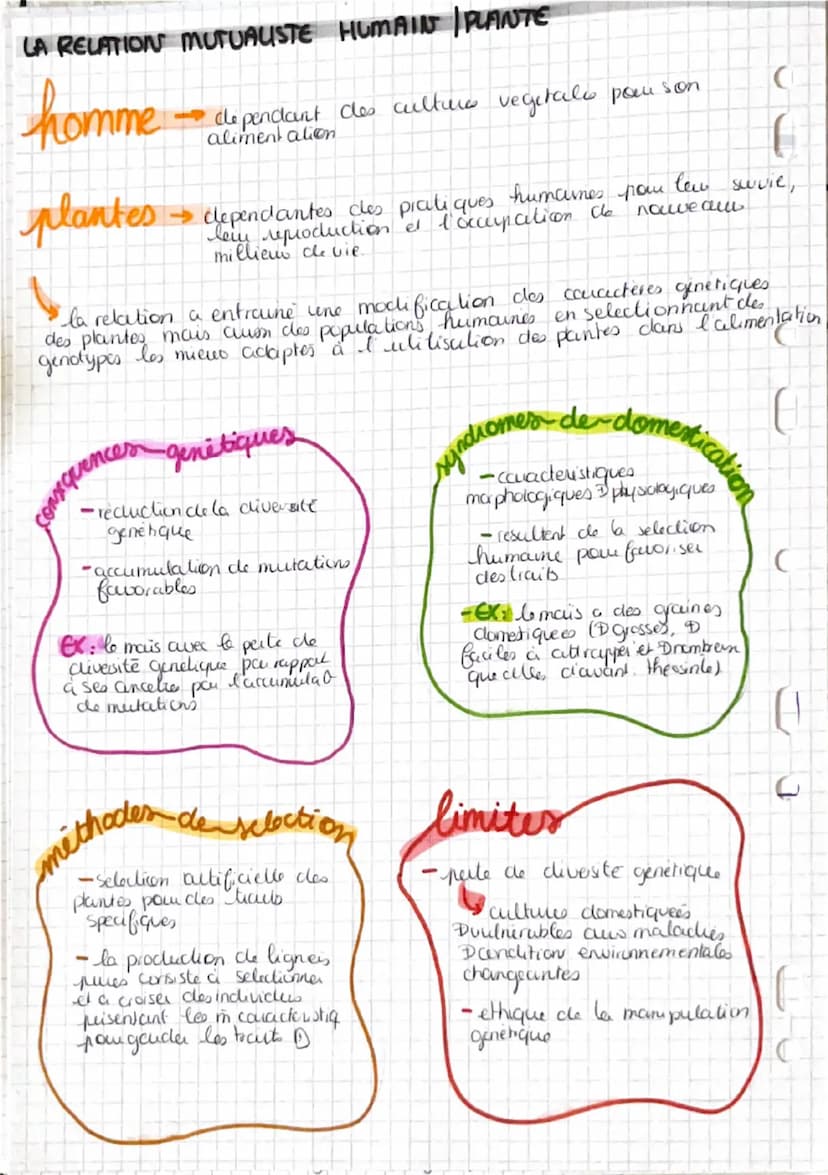 LA RELATION MUTUALISTE HUMAIN | PLANTE
homme → dependant des cultures vegetales pour son
alimentation
plantes → dependantes des pratiques humaines pour leur survie,
leur reproduction et l'occupation de nouveaux
millieux de vie.
la relation a entrainé une modification des caractères génétiques
des plantes mais aussi des populations humaines en selectionnant des
genotypes les mieux adaptés à l'utilisation des plantes dans l'alimentation
consequences génétiques
- reduction de la diversité
genetique
- accumulation de mutations
favorables
Ex: le maïs avec la perte de
diversité genetique par rapport
à ses ancetres par l'accumulat°
de mutations
syndromes de domestication
- caracteristiques
morphologiques physiologiques
- resultent de la selection
humaine pour favoriser
des traits
- Ex: le maïs a des graines
domestiquees (⊕ grosses, ⊕
faciles à attrapper et ⊕ nombreux
que celles d'avant
méthodes de selection
- selection artificielle des
plantes pour des traits
specifiques
- la production de lignées
pures consiste à selectionner
et à croiser des individus
présentant les m̂ caracteristiq
pour garder les trait ⊕
limites
- perte de diversité genetique
cultures domestiquées
⊕ vulnérables aux maladies
⊕ condition environnementales
changeantes
- ethique de la manipulation
genetique